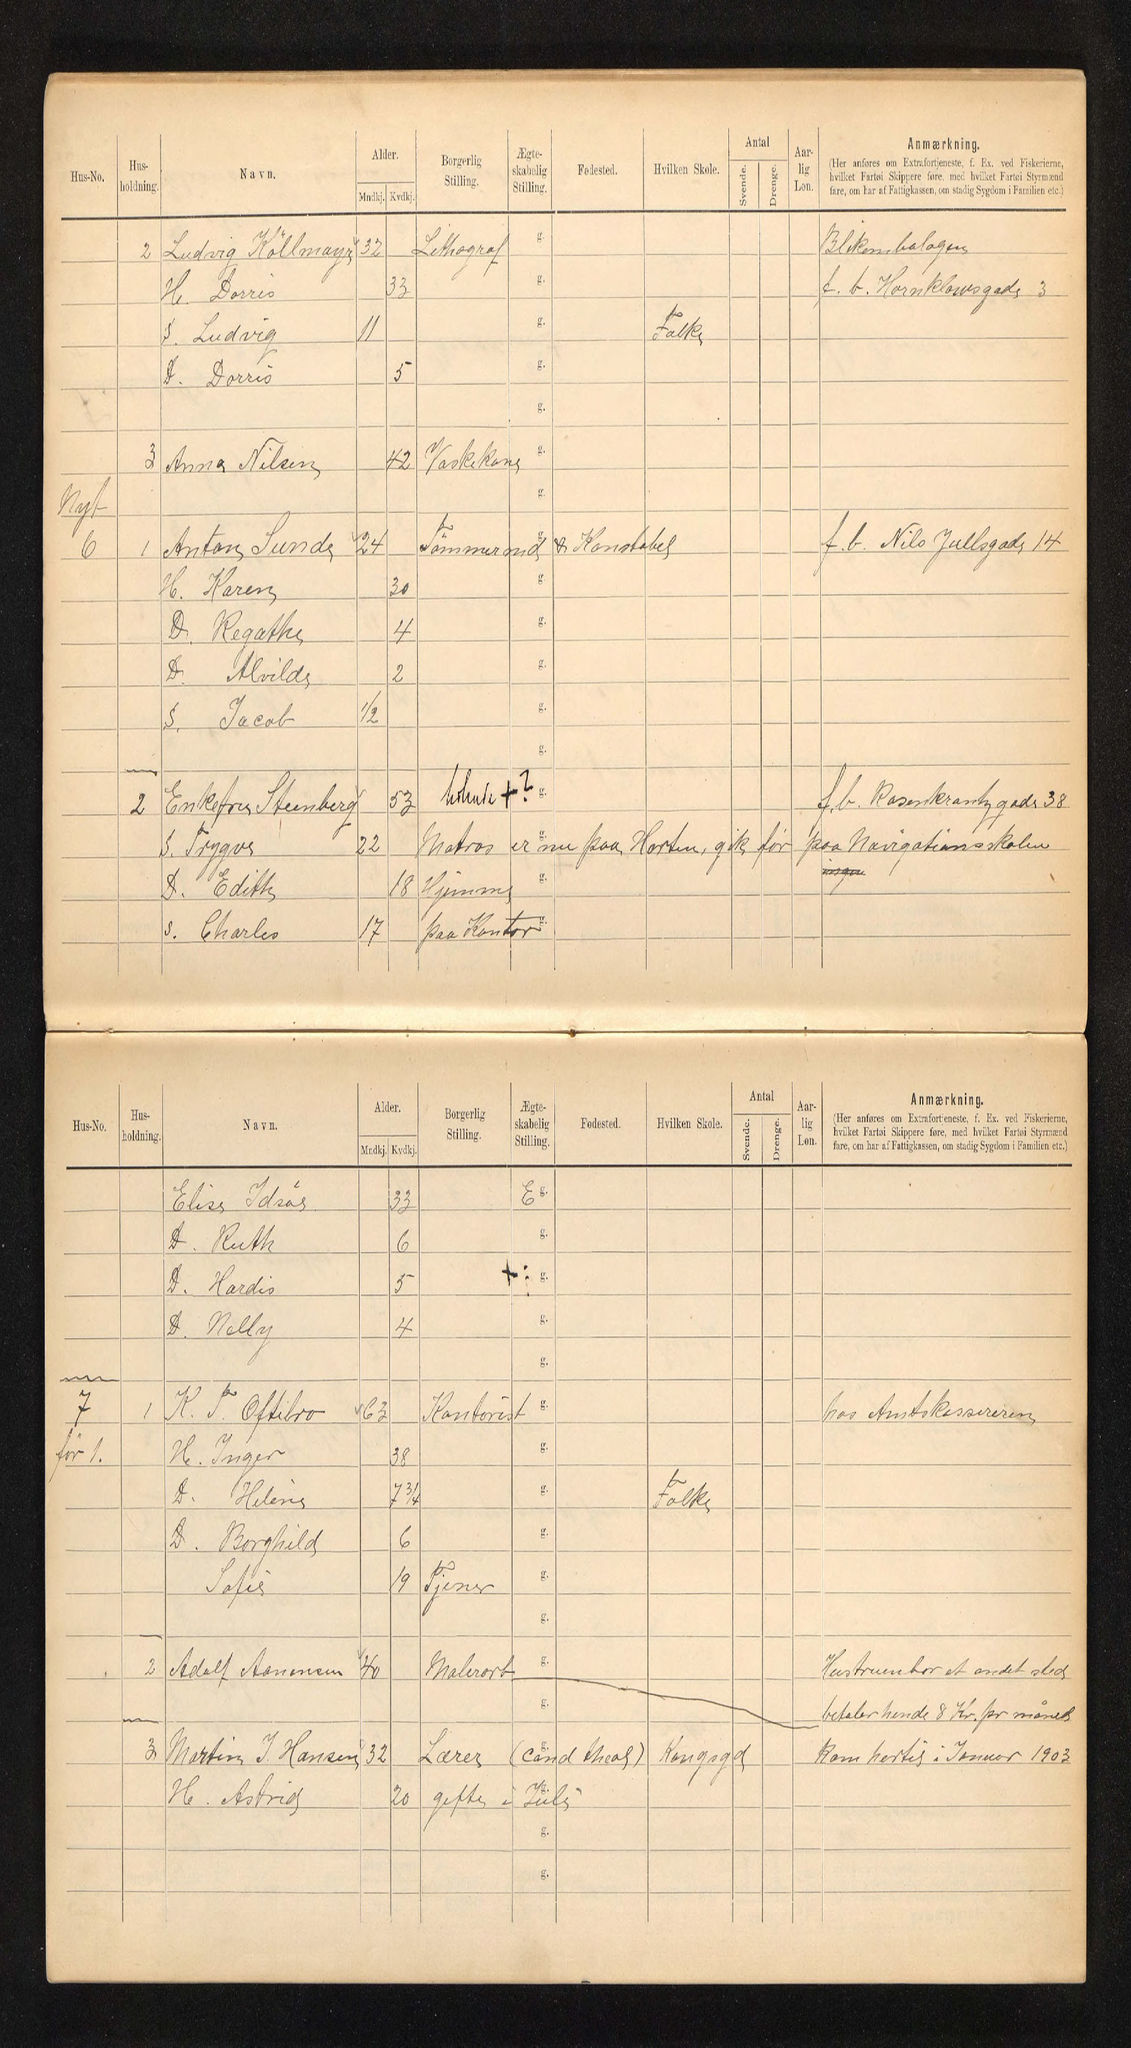 Hus-No.	Hus-holdning.	Navn.	Alder.	Mndkj.	Kvdkj.	Borgerlig Stilling.	Ægte-skabelig Stilling.	Fødested.	Hvilken Skole.	Antal	Svende.	Drenge.	Aar-lig Løn.	Anmærkning.
(Her anføres om Extrafortjeneste, f. Ex. ved Fiskerierne,
hvilket Fartøi Skippere føre, med hvilket Fartøi Styrmænd
fare, om har af Fattigkassen, om stadig Sygdom i Familien etc.)
2 Ludvig Köllmayr 32 Lithograf g. Blikemballagen
H. Dorris 33 g. f. b. Hornklovesgade 3
S. Ludvig 11 g. Folke
D. Dorris 5 g.
g.
3 Anna Nilsen 42 Vaskekone g.
Nyt g.
6 1 Anton Sunde 24 Tømmermd g. & Konstabel f. b. Nils Juellsgade 14
H. Karen 30 g.
D. Regathe 4 g.
D. Alvilde 2 g.
S. Jacob 1/2 g.
g.
2 Enkefru Steenberg 53 +? g. f. b. Rosenkrantzgade 38
S. Trygve 22 Matros er nu paa Horten, gik før paa Navigationsskolen
D. Edith 18 Hjemme g. ingen
S. Charles 17 paa Kontor g.
Hus-No.	Hus-holdning.	Navn.	Alder.	Mndkj.	Kvdkj.	Borgerlig Stilling.	Ægte-skabelig Stilling.	Fødested.	Hvilken Skole.	Antal	Svende.	Drenge.	Aar-lig Løn.	Anmærkning.
(Her anføres om Extrafortjeneste, f. Ex. ved Fiskerierne,
hvilket Fartøi Skippere føre, med hvilket Fartøi Styrmænd
fare, om har af Fattigkassen, om stadig Sygdom i Familien etc.)
Elise Idsöe 33 E g.
D. Ruth 6 g.
D. Hardis 5 + : g.
D. Nelly 4 g.
g.
7 1 K. T. Oftibro 63 Kontorist g. hos Amtskassereren
før 1. H. Inger 38 g.
D. Helene 7 3/4 g. Folke
D. Borghild 6 g.
Sofie 19 Tjener g.
g.
2 Adolf Aanensen 40 Malerarb g. Hustruen bor et andet sted
g. betaler hende 8 Kr. pr måned
3 Martin J. Hansen 32 Lærer g. (cand theol) Kongsgd kom hertil i Januar 1903
H. Astrid 20 giftes i Juli g.
g.
g.